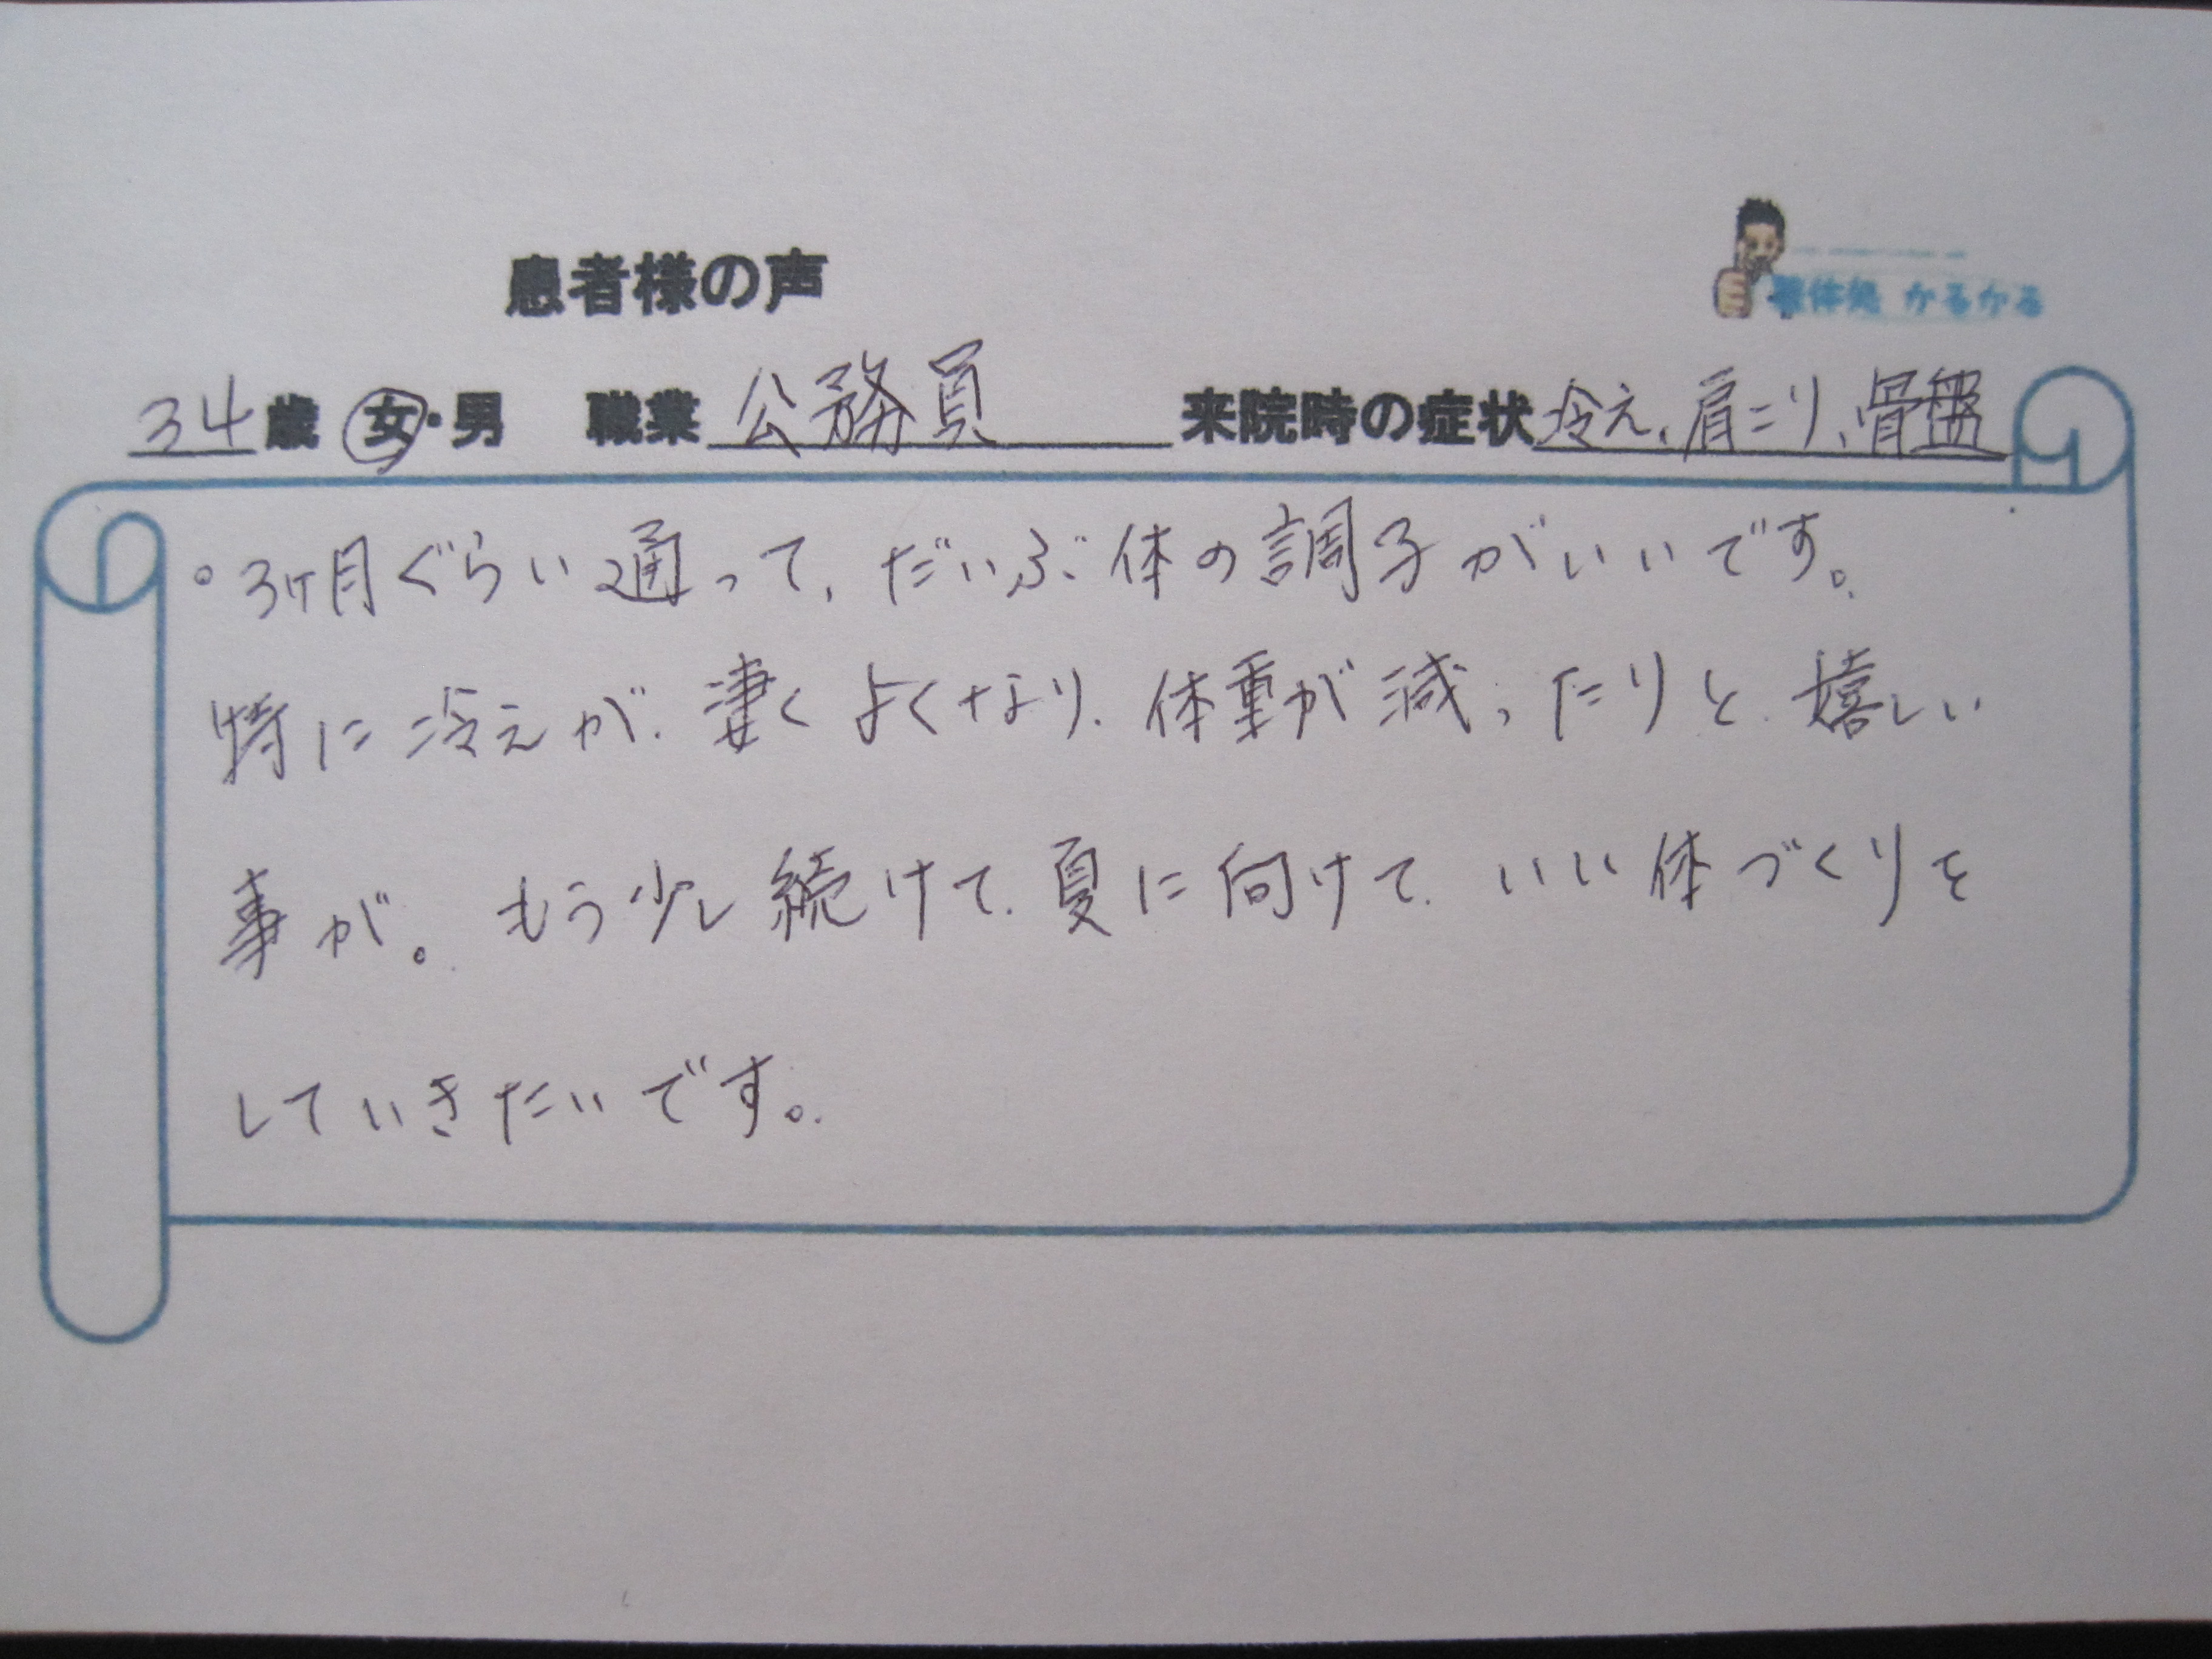 患者様の声
整体処 かるかる
34歳 女・男 職業 公務員 来院時の症状 冷え、肩こり、骨盤
。3ヶ月ぐらい通って、だいぶ体の調子がいいです。
特に冷えが、凄くよくなり、体重が減ったりと、嬉しい
事が。もう少し続けて、夏に向けて、いい体づくりを
していきたいです。